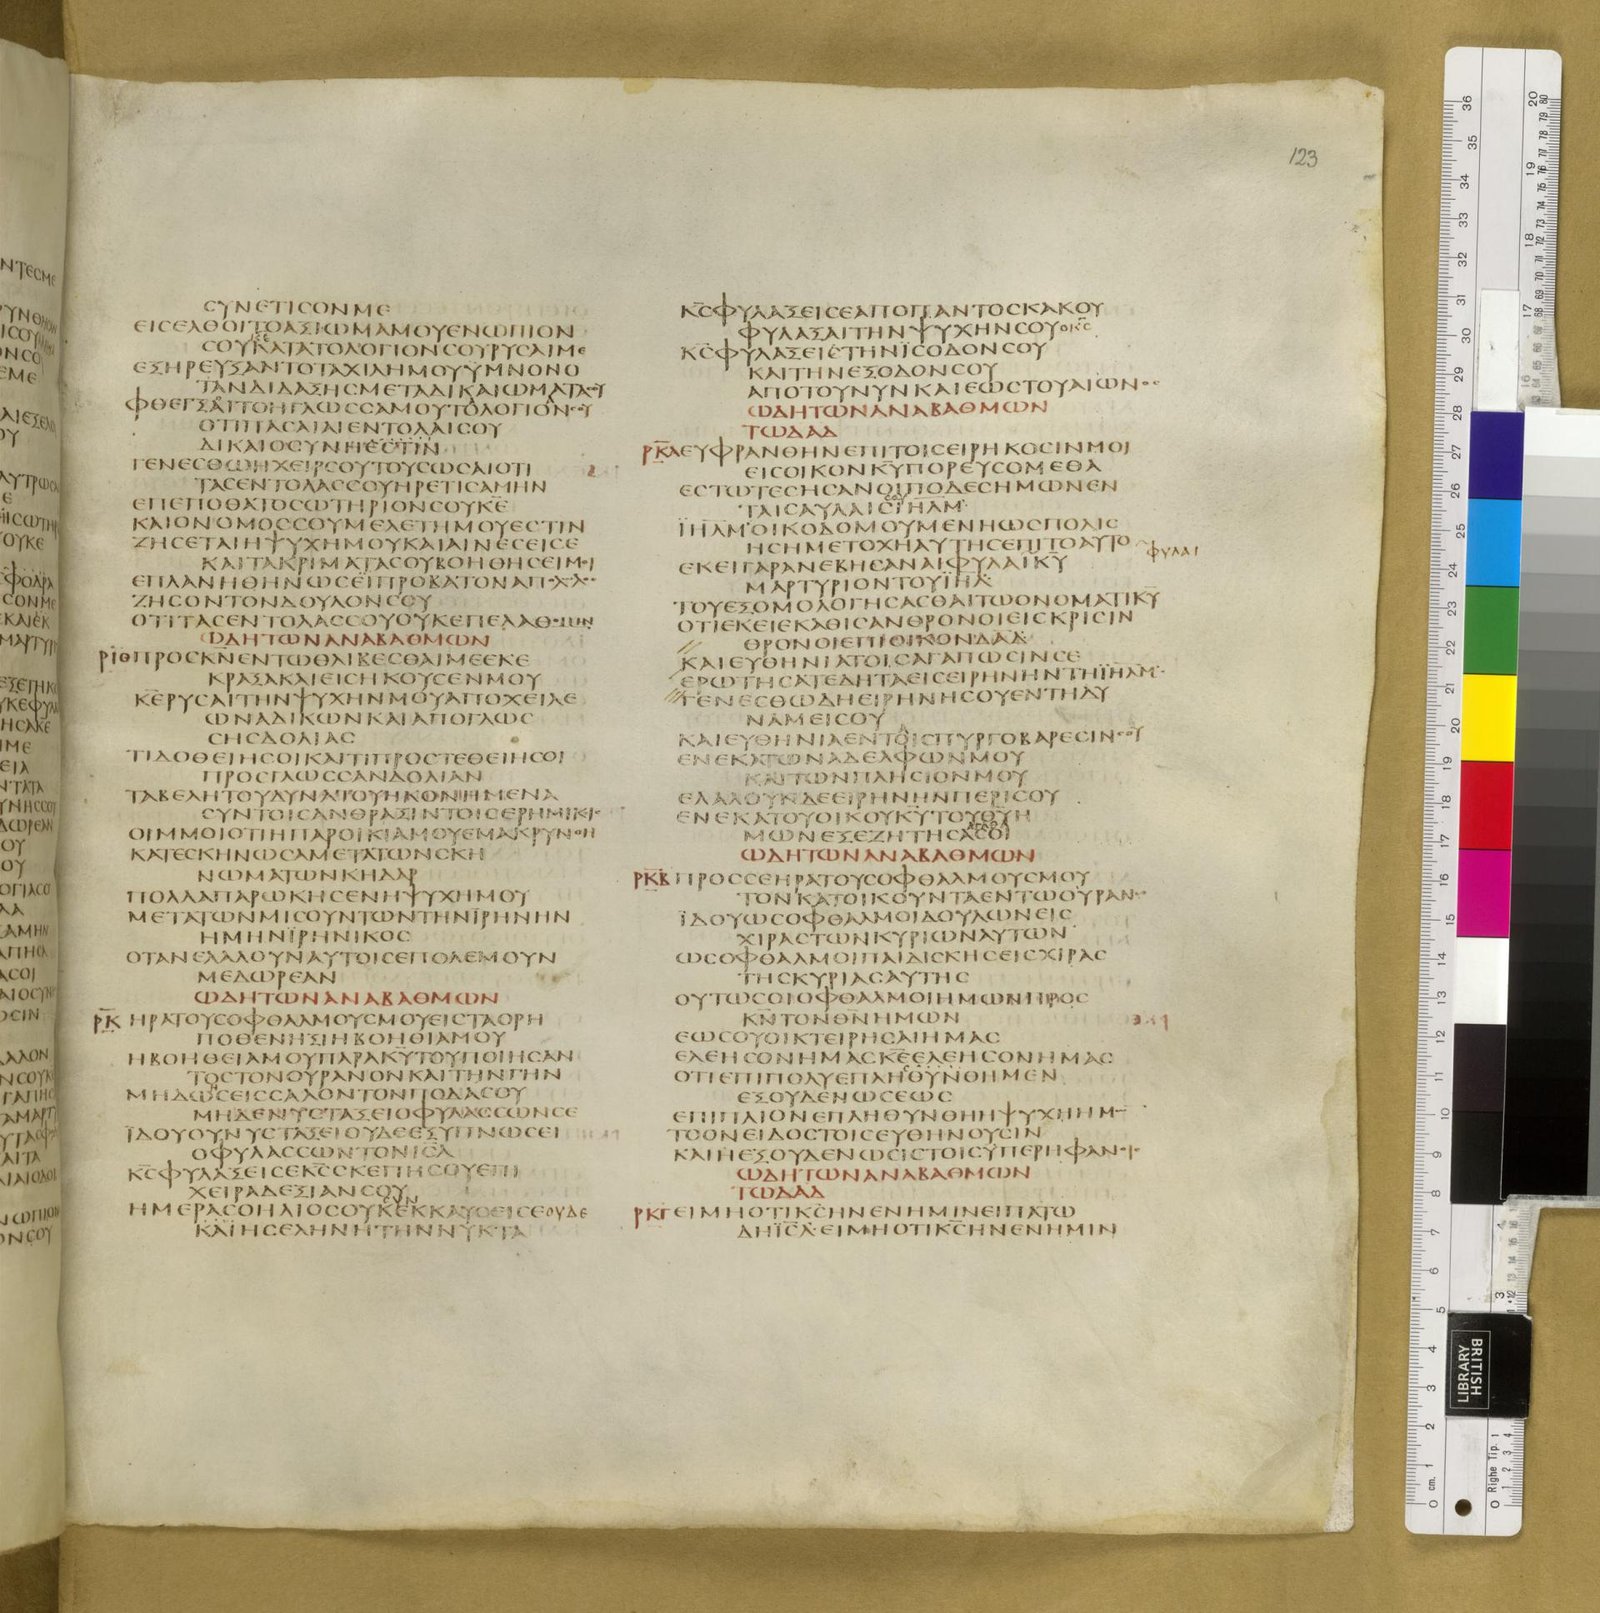 123
ϹΥΝΕΤΙϹΟΝΜΕ
ΕΙϹΕΛΘΟΙΤΟΑΞΙΩΜΑΜΟΥΕΝΩΠΙΟΝ
ϹΟΥΚΑΤΑΤΟΛΟΓΙΟΝϹΟΥΡΥϹΑΙΜΕ
ΕΞΗΡΕΥΞΑΝΤΟΤΑΧΙΛΗΜΟΥΫΜΝΟΝΟ
ΤΑΝΔΙΔΑΞΗϹΜΕΤΑΔΙΚΑΙΩΜΑΤΑϹΟΥ
ΦΘΕΓΞΑΙΤΟΗΓΛΩϹϹΑΜΟΥΤΟΛΟΓΙΟΝϹΟΥ
ΟΤΙΠΑϹΑΙΑΙΕΝΤΟΛΑΙϹΟΥ
ΔΙΚΑΙΟϹΥΝΗΕϹΤΙΝ
ΓΕΝΕϹΘΩΗΧΕΙΡϹΟΥΤΟΥϹΩϹΑΙΟΤΙ
ΤΑϹΕΝΤΟΛΑϹϹΟΥΗΡΕΤΙϹΑΜΗΝ
ΕΠΕΠΟΘΑΤΟϹΩΤΗΡΙΟΝϹΟΥΚΕ
ΚΑΙΟΝΟΜΟϹϹΟΥΜΕΛΕΤΗΜΟΥΕϹΤΙΝ
ΖΗϹΕΤΑΙΗΨΥΧΗΜΟΥΚΑΙΑΙΝΕϹΕΙϹΕ
ΚΑΙΤΑΚΡΙΜΑΤΑϹΟΥΒΟΗΘΗϹΕΙΜΟΙ
ΕΠΛΑΝΗΘΗΝΩϹΕΙΠΡΟΒΑΤΟΝΑΠΟΛΩ
ΖΗϹΟΝΤΟΝΔΟΥΛΟΝϹΟΥ
ΟΤΙΤΑϹΕΝΤΟΛΑϹϹΟΥΟΥΚΕΠΕΛΑΘΟΜΗΝ
ΩΔΗΤΩΝΑΝΑΒΑΘΜΩΝ
ΡΙΘ ΠΡΟϹΚΝΕΝΤΩΘΛΙΒΕϹΘΑΙΜΕΕΚΕ
ΚΡΑΞΑΚΑΙΕΙϹΗΚΟΥϹΕΝΜΟΥ
ΚΕΡΥϹΑΙΤΗΝΨΥΧΗΝΜΟΥΑΠΟΧΕΙΛΕ
ΩΝΑΔΙΚΩΝΚΑΙΑΠΟΓΛΩϹ
ϹΗϹΔΟΛΙΑϹ
ΤΙΔΟΘΕΙΗϹΟΙΚΑΙΤΙΠΡΟϹΤΕΘΕΙΗϹΟΙ
ΠΡΟϹΓΛΩϹϹΑΝΔΟΛΙΑΝ
ΤΑΒΕΛΗΤΟΥΔΥΝΑΤΟΥΗΚΟΝΗΜΕΝΑ
ϹΥΝΤΟΙϹΑΝΘΡΑΞΙΝΤΟΙϹΕΡΗΜΙΚΙ
ΟΙΜΜΟΙΟΤΙΗΠΑΡΟΙΚΙΑΜΟΥΕΜΑΚΡΥΝΘΗ
ΚΑΤΕϹΚΗΝΩϹΑΜΕΤΑΤΩΝϹΚΗ
ΝΩΜΑΤΩΝΚΗΔΑΡ
ΠΟΛΛΑΠΑΡΩΚΗϹΕΝΗΨΥΧΗΜΟΥ
ΜΕΤΑΤΩΝΜΙϹΟΥΝΤΩΝΤΗΝΪΡΗΝΗΝ
ΗΜΗΝΪΡΗΝΙΚΟϹ
ΟΤΑΝΕΛΑΛΟΥΝΑΥΤΟΙϹΕΠΟΛΕΜΟΥΝ
ΜΕΔΩΡΕΑΝ
ΩΔΗΤΩΝΑΝΑΒΑΘΜΩΝ
ΡΚ ΗΡΑΤΟΥϹΟΦΘΑΛΜΟΥϹΜΟΥΕΙϹΤΑΟΡΗ
ΠΟΘΕΝΗΞΙΗΒΟΗΘΙΑΜΟΥ
ΗΒΟΗΘΕΙΑΜΟΥΠΑΡΑΚΥΤΟΥΠΟΙΗϹΑΝ
ΤΟϹΤΟΝΟΥΡΑΝΟΝΚΑΙΤΗΝΓΗΝ
ΜΗΔΩϹΕΙϹϹΑΛΟΝΤΟΝΠΟΔΑϹΟΥ
ΜΗΔΕΝΥϹΤΑΞΕΙΟΦΥΛΑϹϹΩΝϹΕ
ΪΔΟΥΟΥΝΥϹΤΑΞΕΙΟΥΔΕΕΞΥΠΝΩϹΕΙ
ΟΦΥΛΑϹϹΩΝΤΟΝΙϹΛ
ΚϹΦΥΛΑΞΕΙϹΕΚϹϹΚΕΠΗϹΟΥΕΠΙ
ΧΕΙΡΑΔΕΞΙΑΝϹΟΥ
ΗΜΕΡΑϹΟΗΛΙΟϹΟΥΚΕΚΚΑΥϹΕΙϹΕΟΥΔΕ
ΚΑΙΗϹΕΛΗΝΗΤΗΝΝΥΚΤΑ
ΚϹΦΥΛΑΞΕΙϹΕΑΠΟΠΑΝΤΟϹΚΑΚΟΥ
ΦΥΛΑΞΑΙΤΗΝΨΥΧΗΝϹΟΥΟΚϹ
ΚϹΦΥΛΑΞΕΙϹΤΗΝΪϹΟΔΟΝϹΟΥ
ΚΑΙΤΗΝΕΞΟΔΟΝϹΟΥ
ΑΠΟΤΟΥΝΥΝΚΑΙΕΩϹΤΟΥΑΙΩΝΟϹ
ΩΔΗΤΩΝΑΝΑΒΑΘΜΩΝ
ΤΩΔΑΔ
ΡΚΑ ΕΥΦΡΑΝΘΗΝΕΠΙΤΟΙϹΕΙΡΗΚΟϹΙΝΜΟΙ
ΕΙϹΟΙΚΟΝΚΥΠΟΡΕΥϹΟΜΕΘΑ
ΕϹΤΩΤΕϹΗϹΑΝΟΙΠΟΔΕϹΗΜΩΝΕΝ
ΤΑΙϹΑΥΛΑΙϹΪΗΛΜ
ΪΗΛΜΟΙΚΟΔΟΜΟΥΜΕΝΗΩϹΠΟΛΙϹ
ΗϹΗΜΕΤΟΧΗΑΥΤΗϹΕΠΙΤΟΑΥΤΟ
ΦΥΛΑΙ
ΕΚΕΙΓΑΡΑΝΕΒΗϹΑΝΑΙΦΥΛΑΙΚΥ
ΜΑΡΤΥΡΙΟΝΤΟΥΪΗΛ
ΤΟΥΕΞΟΜΟΛΟΓΗϹΑϹΘΑΙΤΩΟΝΟΜΑΤΙΚΥ
ΟΤΙΕΚΕΙΕΚΑΘΙϹΑΝΘΡΟΝΟΙΕΙϹΚΡΙϹΙΝ
ΘΡΟΝΟΙΕΠΙΟΙΚΟΝΔΑΔ
ΚΑΙΕΥΘΗΝΙΑΤΟΙϹΑΓΑΠΩϹΙΝϹΕ
ΕΡΩΤΗϹΑΤΕΔΗΤΑΕΙϹΕΙΡΗΝΗΝΤΗΪΗΛΜ
ΓΕΝΕϹΘΩΔΗΕΙΡΗΝΗϹΟΥΕΝΤΗΔΥ
ΝΑΜΕΙϹΟΥ
ΚΑΙΕΥΘΗΝΙΑΕΝΤΟΙϹΠΥΡΓΟΒΑΡΕϹΙΝϹΟΥ
ΕΝΕΚΑΤΩΝΑΔΕΛΦΩΝΜΟΥ
ΚΑΙΤΩΝΠΛΗϹΙΟΝΜΟΥ
ΕΛΑΛΟΥΝΔΕΕΙΡΗΝΗΝΠΕΡΙϹΟΥ
ΕΝΕΚΑΤΟΥΟΙΚΟΥΚΥΤΟΥΘΥΗ
ΜΩΝΕΞΕΖΗΤΗϹΑϹΟΙ
ΩΔΗΤΩΝΑΝΑΒΑΘΜΩΝ
ΡΚΒ ΠΡΟϹϹΕΗΡΑΤΟΥϹΟΦΘΑΛΜΟΥϹΜΟΥ
ΤΟΝΚΑΤΟΙΚΟΥΝΤΑΕΝΤΩΟΥΡΑΝΩ
ΪΔΟΥΩϹΟΦΘΑΛΜΟΙΔΟΥΛΩΝΕΙϹ
ΧΙΡΑϹΤΩΝΚΥΡΙΩΝΑΥΤΩΝ
ΩϹΟΦΘΑΛΜΟΙΠΑΙΔΙϹΚΗϹΕΙϹΧΙΡΑϹ
ΤΗϹΚΥΡΙΑϹΑΥΤΗϹ
ΟΥΤΩϹΟΙΟΦΘΑΛΜΟΙΗΜΩΝΠΡΟϹ
ΚΝΤΟΝΘΝΗΜΩΝ
ΕΩϹΟΥΟΙΚΤΕΙΡΗϹΑΙΗΜΑϹ
ΕΛΕΗϹΟΝΗΜΑϹΚΕΕΛΕΗϹΟΝΗΜΑϹ
ΟΤΙΕΠΙΠΟΛΥΕΠΛΗΘΥΝΘΗΜΕΝ
ΕΞΟΥΔΕΝΩϹΕΩϹ
ΕΠΙΠΛΙΟΝΕΠΛΗΘΥΝΘΗΗΨΥΧΗΗΜ
ΤΟΟΝΕΙΔΟϹΤΟΙϹΕΥΘΗΝΟΥϹΙΝ
ΚΑΙΗΕΞΟΥΔΕΝΩϹΙϹΤΟΙϹΥΠΕΡΗΦΑΝΟΙϹ
ΩΔΗΤΩΝΑΝΑΒΑΘΜΩΝ
ΤΩΔΑΔ
ΡΚΓ ΕΙΜΗΟΤΙΚϹΗΝΕΝΗΜΙΝΕΙΠΑΤΩ
ΔΗΪϹΛΕΙΜΗΟΤΙΚϹΗΝΕΝΗΜΙΝ
BRITISH
LIBRARY